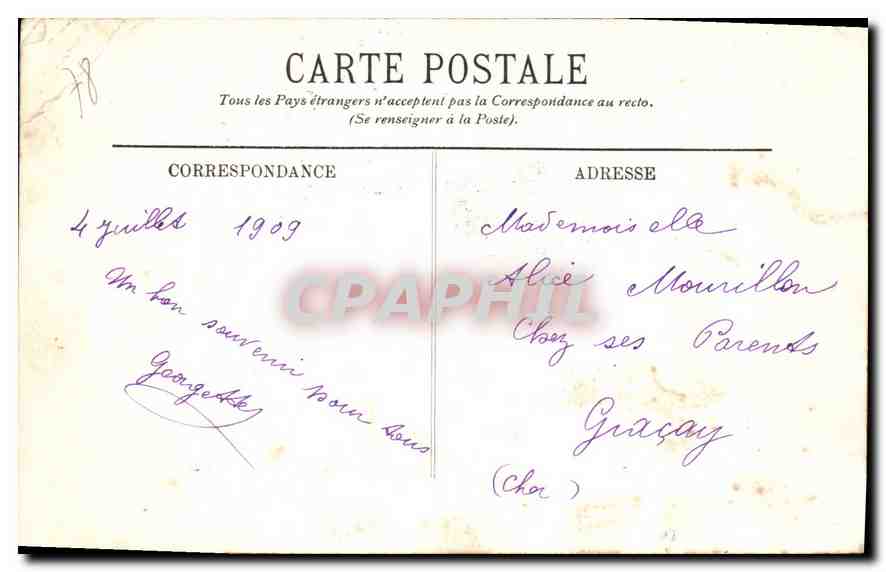 78
CARTE POSTALE
Tous les Pays étrangers n'acceptent pas la Correspondance au recto.
(Se renseigner à la Poste).
CORRESPONDANCE
4 Juillet 1909
Un bon souvenir pour tous
Georgette
ADRESSE
Mademoiselle
Alice Mourillon
Chez ses Parents
Graçay
(Cher)
CPAPHIL